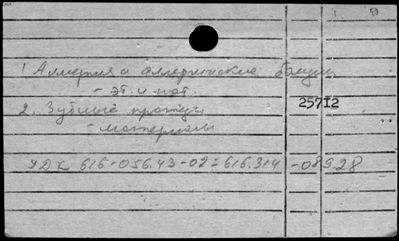 1. Аллергия и аллергические болезни
- эт. и пат.
25712
2. Зубные протезы
- материалы
УДК 616-056.43-02:616.314-08928